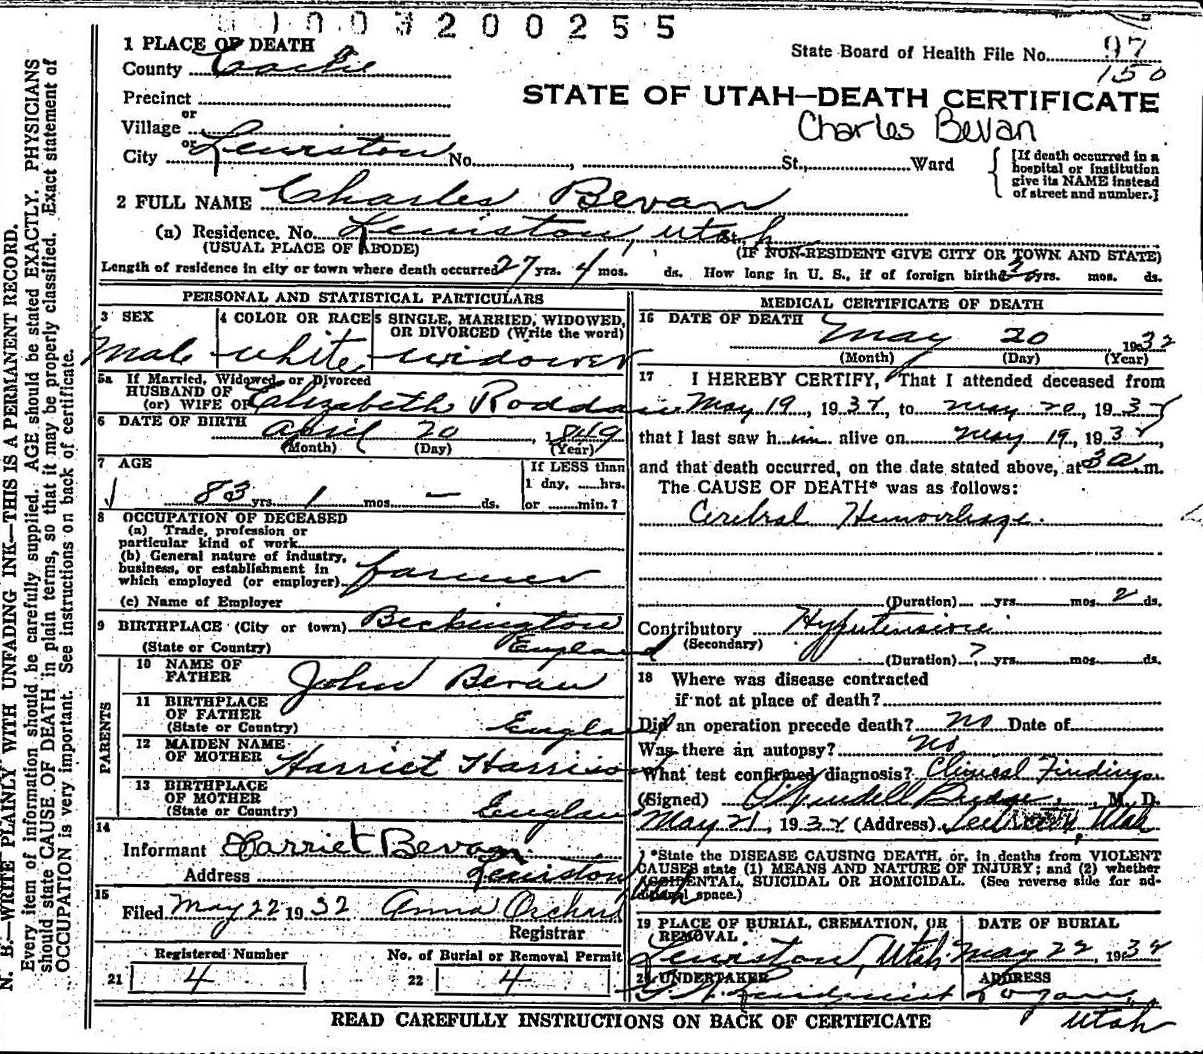 1003200255
1 PLACE OF DEATH
State Board of Health File No. 97
150
County Cache
Precinct
or
Village
or
City Lewiston No. , St., Ward
STATE OF UTAH—DEATH CERTIFICATE
Charles Bevan
[If death occurred in a
hospital or institution
give its NAME instead
of street and number.]
2 FULL NAME Charles Bevan
(a) Residence. No. Lewiston, Utah St.
(USUAL PLACE OF ABODE) (IF NON-RESIDENT GIVE CITY OR TOWN AND STATE)
Length of residence in city or town where death occurred 27 yrs. 4 mos. ds. How long in U. S., if of foreign birth? yrs. mos. ds.
PERSONAL AND STATISTICAL PARTICULARS
3 SEX
Male
4 COLOR OR RACE
white
5 SINGLE, MARRIED, WIDOWED,
OR DIVORCED (Write the word)
widower
5a If Married, Widowed, or Divorced
HUSBAND OF
(or) WIFE OF Elizabeth
6 DATE OF BIRTH April 20 1849
(Month) (Day) (Year)
7 AGE
83 yrs. 1 mos. — ds.
If LESS than
1 day, ......hrs.
or ........min.?
8 OCCUPATION OF DECEASED
(a) Trade, profession or
particular kind of work
(b) General nature of industry,
business, or establishment in
which employed (or employer) farmer
(c) Name of Employer
9 BIRTHPLACE (City or town) Beckington
(State or Country) England
PARENTS
10 NAME OF
FATHER John Bevan
11 BIRTHPLACE
OF FATHER
(State or Country) England
12 MAIDEN NAME
OF MOTHER Harriet Harrison
13 BIRTHPLACE
OF MOTHER
(State or Country) England
14
Informant Harriet Bevan
Address Lewiston Utah
15
Filed May 22 1932 Anna Orchard
Registrar
Registered Number
21 4
No. of Burial or Removal Permit
22 4
MEDICAL CERTIFICATE OF DEATH
16 DATE OF DEATH May 20 1932
(Month) (Day) (Year)
17 I HEREBY CERTIFY, That I attended deceased from
May 19, 1932, to May 20, 1932
that I last saw him alive on May 19, 1932,
and that death occurred, on the date stated above, at 3 a m.
The CAUSE OF DEATH* was as follows:
Cerebral Hemorrhage.
(Duration) yrs. mos. 2 ds.
Contributory Hypertension
(Secondary)
(Duration) ? yrs. mos. ds.
18 Where was disease contracted
if not at place of death?
Did an operation precede death? no Date of
Was there an autopsy? no
What test confirmed diagnosis? Clinical Findings
(Signed) Budge, M. D.
May 21, 1932 (Address) Utah
*State the DISEASE CAUSING DEATH, or, in deaths from VIOLENT
CAUSES state (1) MEANS AND NATURE OF INJURY; and (2) whether
ACCIDENTAL, SUICIDAL OR HOMICIDAL. (See reverse side for ad-
ditional space.)
19 PLACE OF BURIAL, CREMATION, OR
REMOVAL
Lewiston, Utah
DATE OF BURIAL
May 22, 1932
20 UNDERTAKER
Lindquist
ADDRESS
Logan,
Utah
READ CAREFULLY INSTRUCTIONS ON BACK OF CERTIFICATE
N. B.—WRITE PLAINLY WITH UNFADING INK—THIS IS A PERMANENT RECORD.
Every item of information should be carefully supplied. AGE should be stated EXACTLY. PHYSICIANS
should state CAUSE OF DEATH in plain terms, so that it may be properly classified. Exact statement of
OCCUPATION is very important. See instructions on back of certificate.